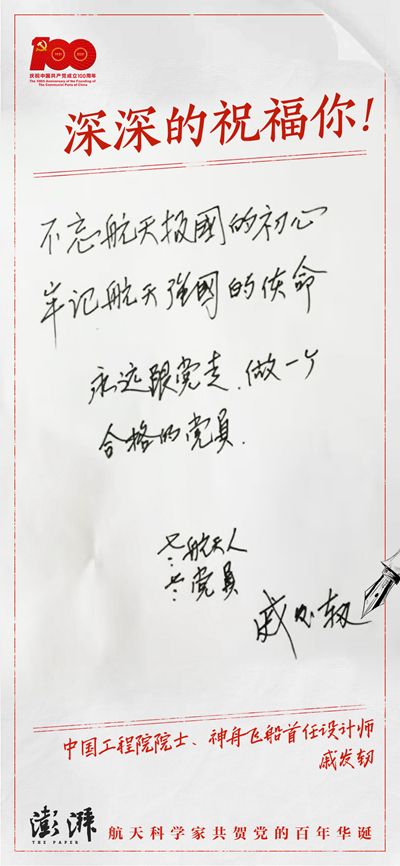 100
庆祝中国共产党成立100周年
The 100th Anniversary of the Founding of
The Communist Party of China
深深的祝福你!
不忘航天报國的初心
牢记航天强國的使命
永远跟党走.做一个
合格的党員.
航天人
党員
戚发轫
中国工程院院士、神舟飞船首任设计师
戚发轫
澎湃
THE PAPER
航天科学家共贺党的百年华诞